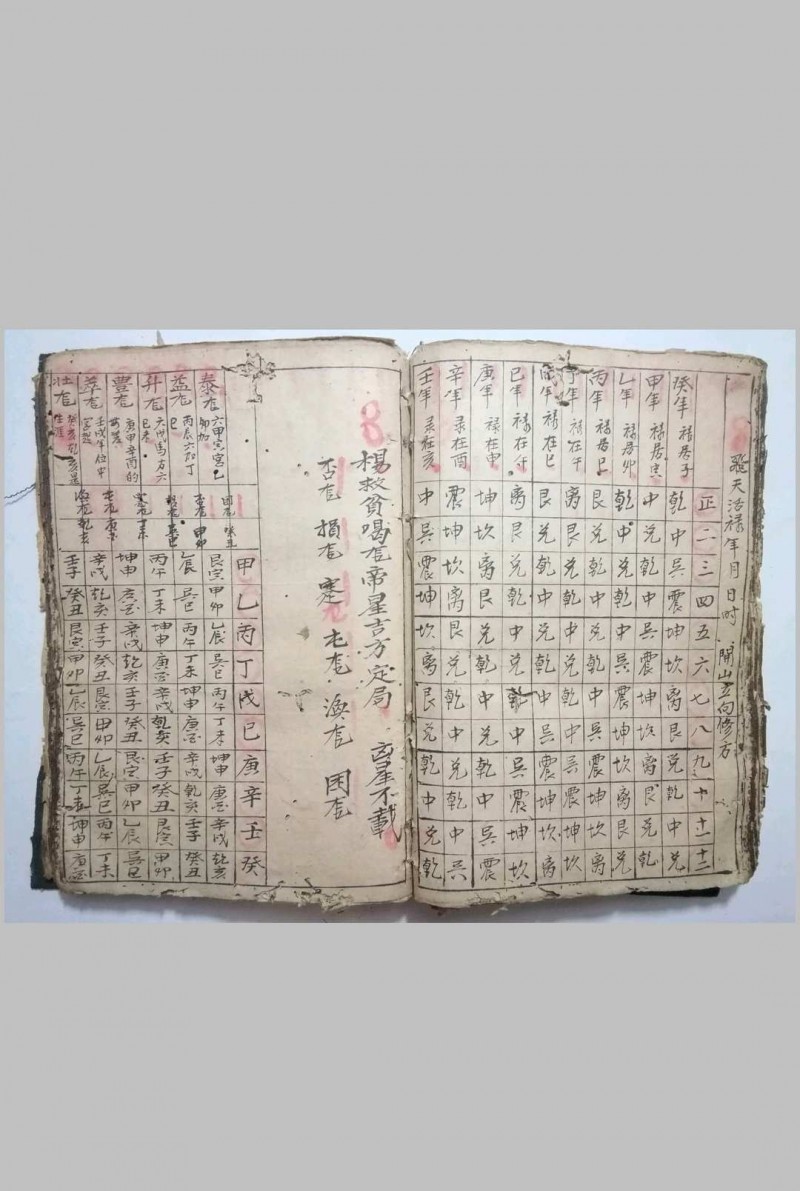 飛天活禄年月日時 開山立向修方
正 二 三 四 五 六 七 八 九 十 十一 十二
癸年 禄居子 乾 中 巽 震 坤 坎 离 艮 兑 乾 中 兑
甲年 禄居寅 中 兑 乾 中 巽 震 坤 坎 离 艮 兑 乾
乙年 禄居卯 乾 中 兑 乾 中 巽 震 坤 坎 离 艮 兑
丙年 禄居巳 艮 兑 乾 中 兑 乾 中 巽 震 坤 坎 离
丁年 禄在午 离 艮 兑 乾 中 兑 乾 中 巽 震 坤 坎
戊年 禄在巳 艮 兑 乾 中 兑 乾 中 巽 震 坤 坎 离
己年 禄在午 离 艮 兑 乾 中 兑 乾 中 巽 震 坤 坎
庚年 禄在申 坤 坎 离 艮 兑 乾 中 兑 乾 中 巽 震
辛年 录在酉 震 坤 坎 离 艮 兑 乾 中 兑 乾 中 巽
壬年 录在亥 中 巽 震 坤 坎 离 艮 兑 乾 中 兑 乾
楊救貧喝卦帝星吉方定局 凶星不載
否卦 損卦 蹇卦 屯卦 渙卦 困卦
甲 乙 丙 丁 戊 己 庚 辛 壬 癸
泰卦 六甲寅宮
艮寅 甲卯 乙辰 巽巳 丙午 丁未 坤申 庚酉 辛戌 乾亥
益卦 丙辰六加丁巳 甲卯
乙辰 巽巳 丙午 丁未 坤申 庚酉 辛戌 乾亥 壬子 癸丑
升卦
丙午 丁未 坤申 庚酉 辛戌 乾亥 壬子 癸丑 艮寅 甲卯
豐卦 庚甲辛酉
坤申 庚酉 辛戌 乾亥 壬子 癸丑 艮寅 甲卯 乙辰 巽巳
萃卦
辛戌 乾亥 壬子 癸丑 艮寅 甲卯 乙辰 巽巳 丙午 丁未
壮卦 乾亥
壬子 癸丑 艮寅 甲卯 乙辰 巽巳 丙午 丁未 坤申 庚酉